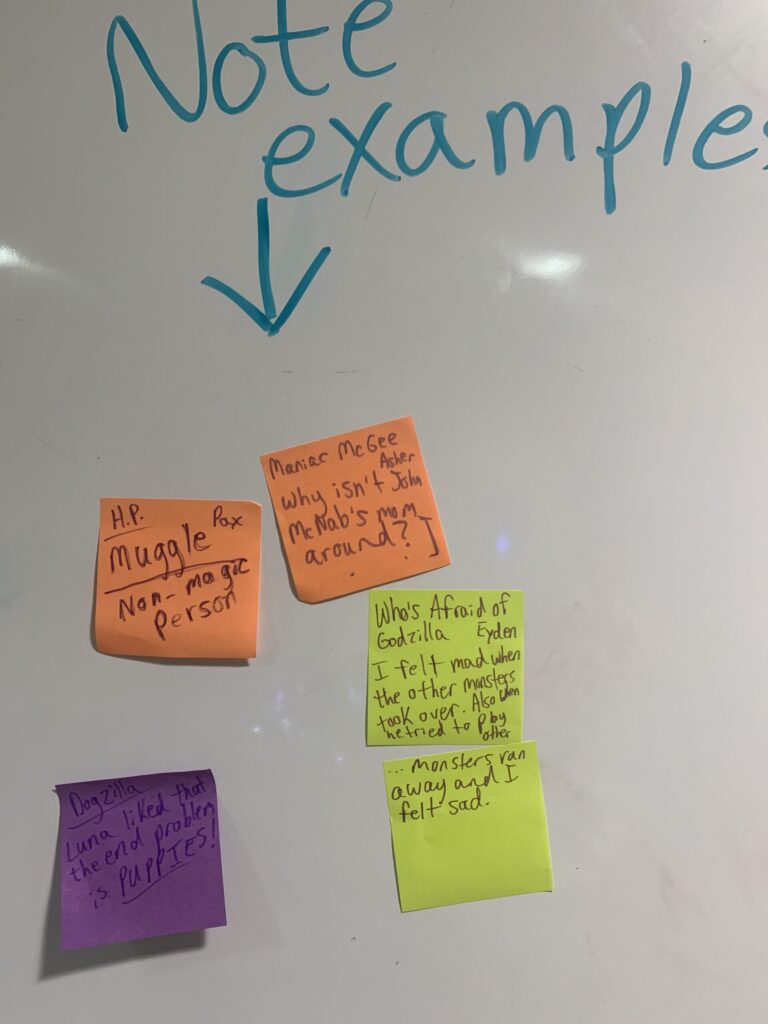 Note
examples
Maniac McGee
Asher
Why isn't John
McNab's mom
around?
H.P.
Pax
Muggle
Non-magic
Person
Who's Afraid of
Godzilla Eyden
I felt mad when
the other monsters
took over. Also when
he tried to play
other
... monsters ran
away and I
felt sad.
Dogzilla
Luna liked that
the end problem
is PUPPIES!